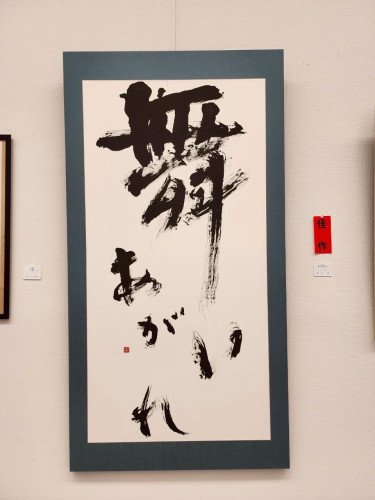 舞い
あがれ
佳作